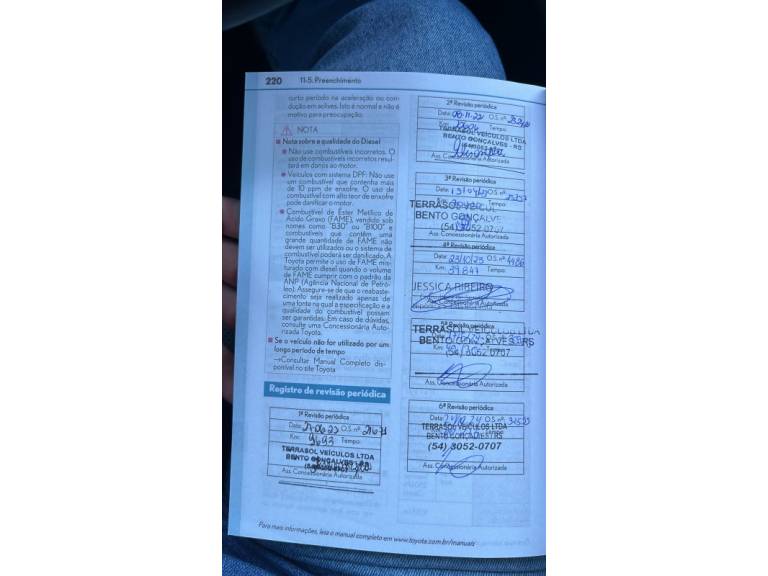 220 11-5. Preenchimento
curto período na aceleração ou con-
dução em aclives. Isto é normal e não é
motivo para preocupação.
NOTA
Nota sobre a qualidade do Diesel
Não use combustíveis incorretos. O
uso de combustíveis incorretos resul-
tará em danos ao motor.
Veículos com sistema DPF: Não use
um combustível que contenha mais
de 10 ppm de enxofre. O uso de
combustível com alto teor de enxofre
pode danificar o motor.
Combustível de Éster Metílico de
Ácido Graxo (FAME), vendido sob
nomes como "B30" ou "B100" e
combustíveis que contêm uma
grande quantidade de FAME não
devem ser utilizados ou o sistema de
combustível poderá ser danificado. A
Toyota permite o uso de FAME mis-
turado com diesel quando o volume
de FAME cumprir com o padrão da
ANP (Agência Nacional de Petró-
leo). Assegure-se de que o reabaste-
cimento seja realizado apenas de
uma fonte na qual a especificação e a
qualidade do combustível possam
ser garantidas. Em caso de dúvidas,
consulte uma Concessionária Auto-
rizada Toyota.
Se o veículo não for utilizado por um
longo período de tempo
→Consultar Manual Completo dis-
ponível no site Toyota
Registro de revisão periódica
1ª Revisão periódica
Data: O.S. nº:
Km: 9693 Tempo:
TERRASOL VEÍCULOS LTDA
BENTO GONÇALVES - RS
Ass. Concessionária Autorizada
2ª Revisão periódica
Data: O.S. nº:
Km: Tempo:
TERRASOL VEÍCULOS LTDA
BENTO GONÇALVES - RS
Ass. Concessionária Autorizada
3ª Revisão periódica
Data: O.S. nº:
TERRASOL VEÍCUL
BENTO GONÇALVE
(54) 3052-0707
4ª Revisão periódica
Data: 23/10/23 O.S. nº: 4486
Km: 39.844 Tempo:
JESSICA RIBEIRO
5ª Revisão periódica
TERRASOL VEÍCULOS LTDA
BENTO GONÇALVES/RS
(54) 3052-0707
Ass. Concessionária Autorizada
6ª Revisão periódica
Data: O.S. nº:
TERRASOL VEÍCULOS LTDA
BENTO GONÇALVES/RS
(54) 3052-0707
Ass. Concessionária Autorizada
Para mais informações, leia o manual completo em www.toyota.com.br/manuais